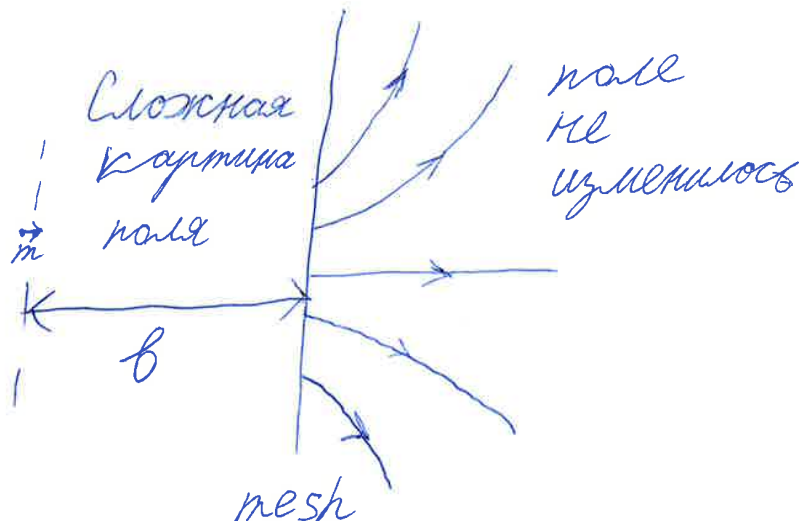 Сложная
картина
поля
поле
не
изменилось
m
b
mesh